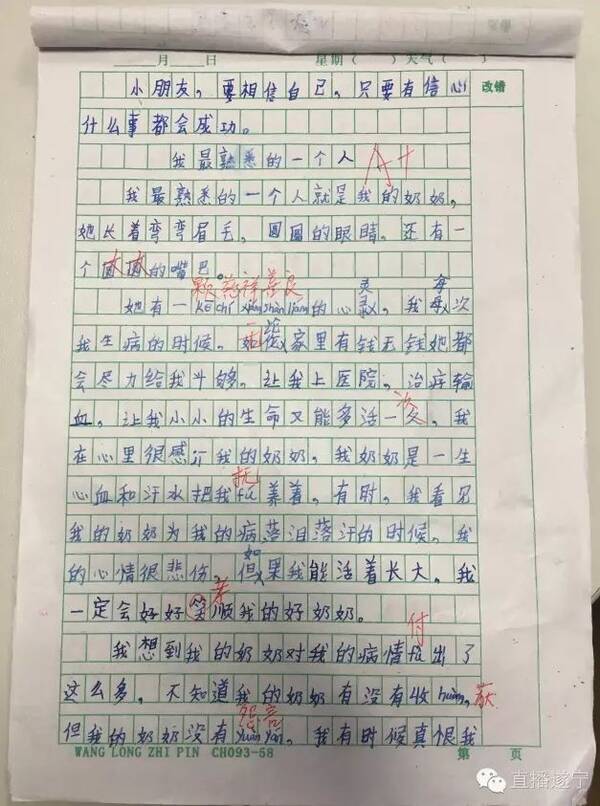 月 日 星期( ) 天气( )
小朋友,要相信自己,只要有信心 改错
什么事都会成功。
我最熟悉的一个人 A+
我最熟悉的一个人就是我的奶奶,
她长着弯弯眉毛,圆圆的眼睛。还有一
个大大的嘴巴。
颗慈祥善良 灵 每
她有一kē chí xiáng shàn liáng的心,我每次
我生病的时候。家里有钱无钱她都
会尽力给我斗够,让我上医院,治疗输
血。让我小小的生命又能多活一次,我
在心里很感介我的奶奶,我奶奶是一生
抚
心血和汗水把我fǔ养着,有时,我看见
我的奶奶为我的病落泪落汗的时候,我
如
的心情很悲伤,但果我能活着长大,我
孝
一定会好好笑顺我的好奶奶。
付
我想到我的奶奶对我的病情付出了
这么多,不知道我的奶奶有没有收huò, 获
怨言
但我的奶奶没有yuàn yán,我有时候真恨我
WANG LONG ZHI PIN CH093-58 第 页
直播遂宁